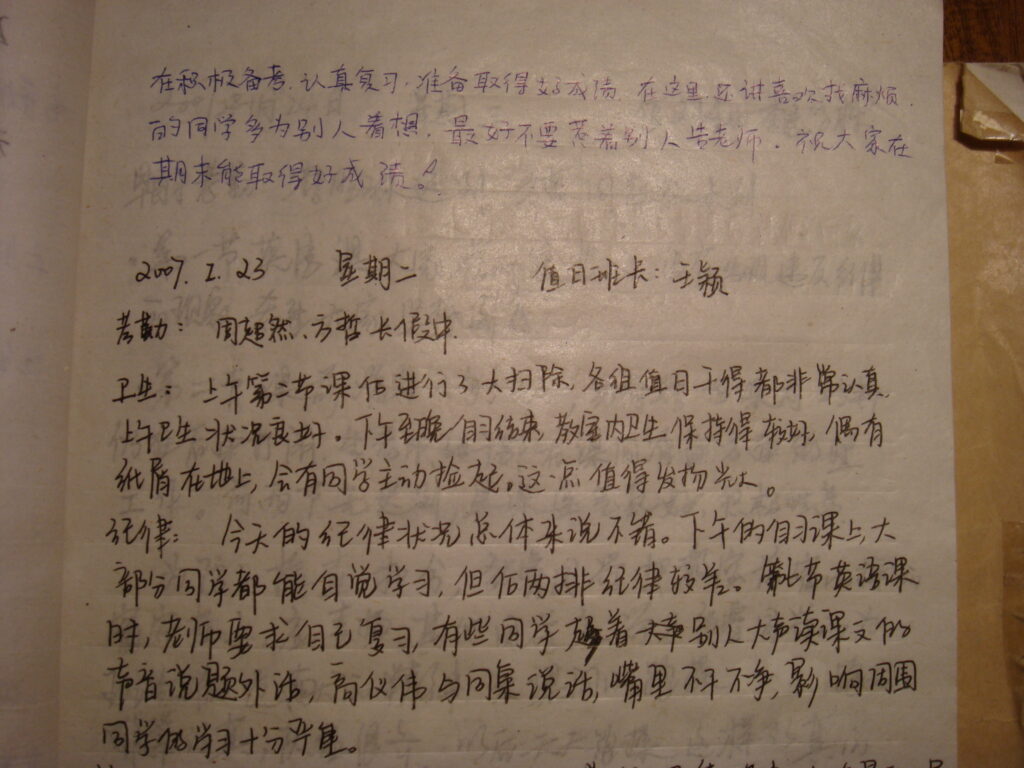 在积极备考.认真复习.准备取得好成绩.在这里还讲喜欢找麻烦.
的同学多为别人着想.最好不要惹着别人告老师.祝大家在
期末能取得好成绩!
2007.1.23 星期二 值日班长:王颖
考勤:周超然.方哲长假中.
卫生:上午第二节课后进行了大扫除,各组值日干得都非常认真,
上午卫生状况良好。下午至晚自习结束,教室内卫生保持得较好,偶有
纸屑在地上,会有同学主动捡起。这一点值得发扬光大。
纪律:今天的纪律状况总体来说不错。下午的自习课上,大
部分同学都能自觉学习,但后两排纪律较差。第七节英语课
时,老师要求自己复习,有些同学趁着别人大声读课文的
声音说题外话,高仪伟与同桌说话,嘴里不干不净,影响周围
同学的学习十分严重。